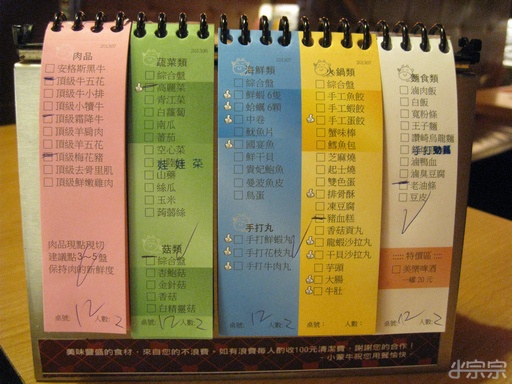 肉品
安格斯黑牛
頂級牛五花
頂級牛小排
頂級小犢牛
頂級霜降牛
頂級羊肩肉
頂級羊五花
頂級梅花豬
頂級去骨里肌
頂級鮮嫩雞肉
肉品現點現切
建議點3~5盤
保持肉的新鮮度
桌號: 12 人數: 2
蔬菜類
綜合盤
高麗菜
青江菜
白蘿蔔
南瓜
蕃茄
空心菜
娃娃菜
山藥
絲瓜
玉米
蒟蒻絲
菇類
綜合盤
杏鮑菇
金針菇
香菇
白精靈菇
桌號: 12 人數: 2
海鮮類
綜合盤
鮮蝦6隻
蛤蠣6顆
中卷
魷魚片
國宴魚
鮮干貝
貴妃鮑魚
曼波魚皮
鳥蛋
手打丸
手打鮮蝦丸
手打花枝丸
手打牛肉丸
桌號: 12 人數: 2
火鍋類
綜合盤
手工魚餃
手工蝦餃
手工蛋餃
蟹味棒
鱈魚包
芝麻燒
起士燒
雙色蛋
排骨酥
凍豆腐
豬血糕
香菇貢丸
龍蝦沙拉丸
干貝沙拉丸
芋頭
大腸
牛肚
桌號: 人數:
麵食類
滷肉飯
白飯
寬粉條
王子麵
讚崎烏龍麵
手打勁麵
滷鴨血
滷臭豆腐
老油條
豆皮
特價區
美樂啤酒
桌號: 12 人數: 2
美味豐盛的食材，來自您的不浪費，如有浪費每人酌收100元清潔費，謝謝您的合作！
-小蒙牛祝您用餐愉快
小宗宗